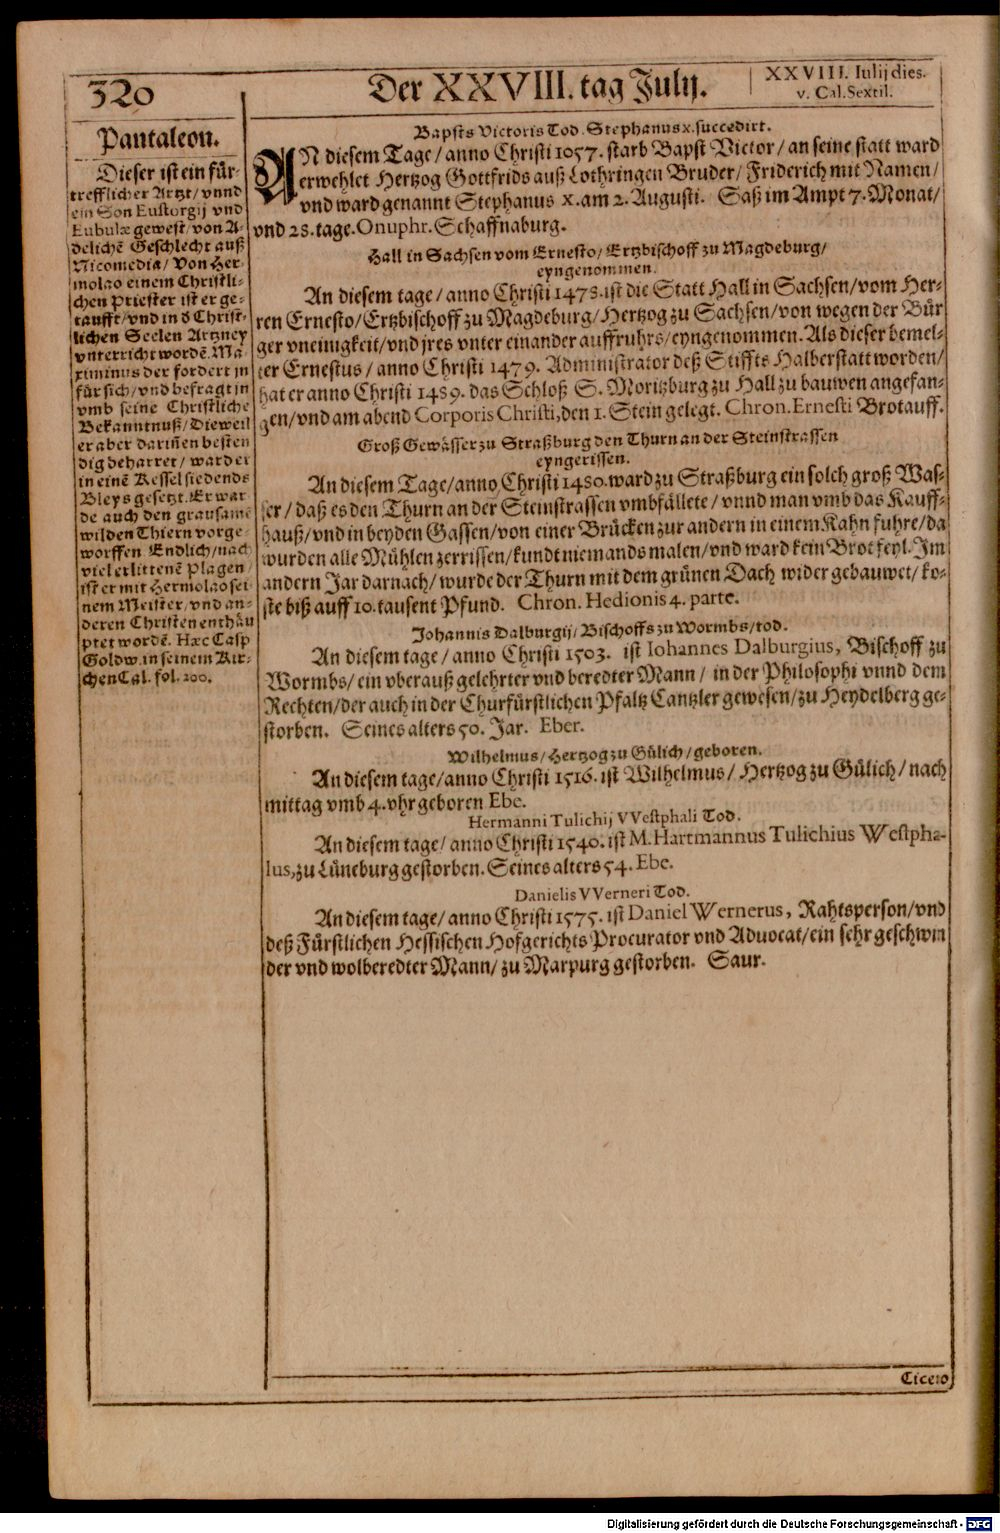 320
Der XXVIII. tag Julij.
XXVIII. Iulij dies.
v. Cal. Sextil.
Pantaleon.
Dieser ist ein für-
trefflicher Artzt/ vnnd
ein Son Eustorgij vnd
Eubulæ gewest/ von A-
delichē Geschlecht auß
Nicomedia/ Von Her-
molao einem Christli-
chen Priester ist er ge-
taufft/ vnd in d Christ-
lichen Seelen Artzney
vnterricht wordē. Ma-
ximinus der fordert jn
für sich/ vnd befragt jn
vmb seine Christliche
Bekanntnuß/ Dieweil
er aber dariñen besten
dig beharret/ ward er
in einē Kessel siedends
Bleys gesetzt. Er war
de auch den grausamē
wilden Thiern vorge-
worffen. Endlich/ nach
viel erlittenē Plagen/
ist er mit Hermolao sei-
nem Meister/ vnd an-
deren Christen enthäu
ptet wordē. Hæc Casp
Goldw. in seinem Kir-
chen Cal. fol. 200.
Bapsts Victoris Tod. Stephanus x. succedirt.
AN diesem Tage/ anno Christi 1057. starb Bapst Victor/ an seine statt ward
erwehlet Hertzog Gottfrids auß Lothringen Bruder/ Friderich mit Namen/
vnd ward genannt Stephanus x. am 2. Augusti. Saß im Ampt 7. Monat/
vnd 28. tage. Onuphr. Schaffnaburg.
Hall in Sachsen vom Ernesto/ Ertzbischoff zu Magdeburg/
eyngenommen.
An diesem tage/ anno Christi 1478. ist die Statt Hall in Sachsen/ vom Her-
ren Ernesto/ Ertzbischoff zu Magdeburg/ Hertzog zu Sachsen/ von wegen der Bür
ger vneinigkeit/ vnd jres vnter einander auffruhrs/ eyngenommen. Als dieser bemel-
ter Ernestus/ anno Christi 1479. Administrator deß Stiffts Halberstatt worden/
hat er anno Christi 1489. das Schloß S. Moritzburg zu Hall zu bauwen angefan-
gen/ vnd am abend Corporis Christi, den 1. Stein gelegt. Chron. Ernesti Brotauff.
Groß Gewässer zu Straßburg den Thurn an der Steinstrassen
eyngerissen.
An diesem Tage/ anno Christi 1480. ward zu Straßburg ein solch groß Was-
ser/ daß es den Thurn an der Steinstrassen vmbfällete/ vnnd man vmb das Kauff-
hauß/ vnd in beyden Gassen/ von einer Brücken zur andern in einem Kahn fuhre/ da
wurden alle Mühlen zerrissen/ kundt niemands malen/ vnd ward kein Brot feyl. Im
andern Jar darnach/ wurde der Thurn mit dem grünen Dach wider gebauwet/ ko-
ste biß auff 10. tausent Pfund. Chron. Hedionis 4. parte.
Johannis Dalburgij/ Bischoffs zu Wormbs/ tod.
An diesem tage/ anno Christi 1503. ist Iohannes Dalburgius, Bischoff zu
Wormbs/ ein vberauß gelehrter vnd beredter Mann/ in der Philosophi vnnd dem
Rechten/ der auch in der Churfürstlichen Pfaltz Cantzler gewesen/ zu Heydelberg ge-
storben. Seines alters 50. Jar. Eber.
Wilhelmus/ Hertzog zu Gülich/ geboren.
An diesem tage/ anno Christi 1516. ist Wilhelmus/ Hertzog zu Gülich/ nach
mittag vmb 4. vhr geboren Ebe.
Hermanni Tulichij VVestphali Tod.
An diesem tage/ anno Christi 1540. ist M. Hartmannus Tulichius Westpha-
lus, zu Lüneburg gestorben. Seines alters 54. Ebe.
Danielis VVerneri Tod.
An diesem tage/ anno Christi 1575. ist Daniel Wernerus, Rahtsperson/ vnd
deß Fürstlichen Hessischen Hofgerichts Procurator vnd Aduocat/ ein sehr geschwin
der vnd wolberedter Mann/ zu Marpurg gestorben. Saur.
Cicero
Digitalisierung gefördert durch die Deutsche Forschungsgemeinschaft - DFG